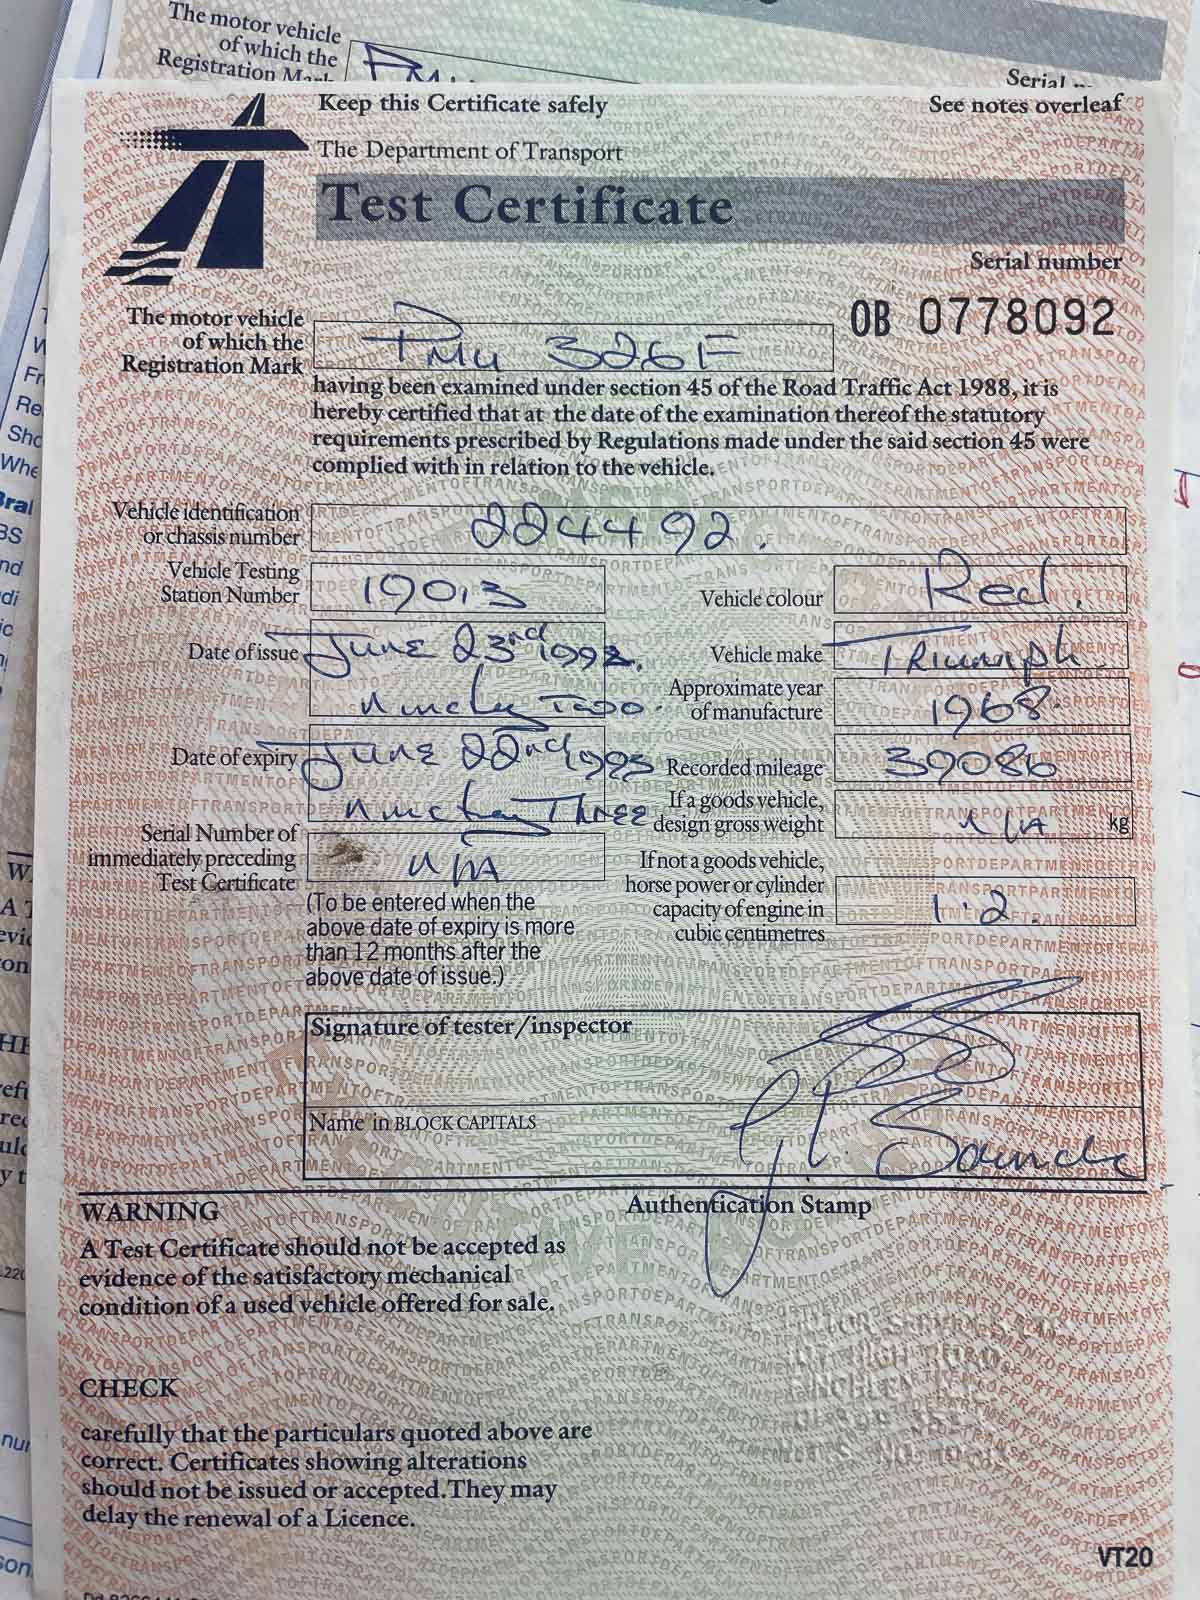 The motor vehicle
of which the
Registration Mark
Serial
Keep this Certificate safely
See notes overleaf
The Department of Transport
Test Certificate
Serial number
OB 0778092
The motor vehicle
of which the
Registration Mark
PMU 326F
having been examined under section 45 of the Road Traffic Act 1988, it is
hereby certified that at the date of the examination thereof the statutory
requirements prescribed by Regulations made under the said section 45 were
complied with in relation to the vehicle.
Vehicle identification
or chassis number
224492.
Vehicle Testing
Station Number
19013
Vehicle colour
Red.
Date of issue
June 23rd 1992.
Ninety Two.
Vehicle make
Triumph.
Approximate year
of manufacture
1968.
Date of expiry
June 22nd 1993
Ninety Three
Recorded mileage
39086
If a goods vehicle,
design gross weight
N/A
kg
Serial Number of
immediately preceding
Test Certificate
N/A
(To be entered when the
above date of expiry is more
than 12 months after the
above date of issue.)
If not a goods vehicle,
horse power or cylinder
capacity of engine in
cubic centimetres
1.2
Signature of tester/inspector
Name in BLOCK CAPITALS
WARNING
A Test Certificate should not be accepted as
evidence of the satisfactory mechanical
condition of a used vehicle offered for sale.
Authentication Stamp
CHECK
carefully that the particulars quoted above are
correct. Certificates showing alterations
should not be issued or accepted. They may
delay the renewal of a Licence.
VT20